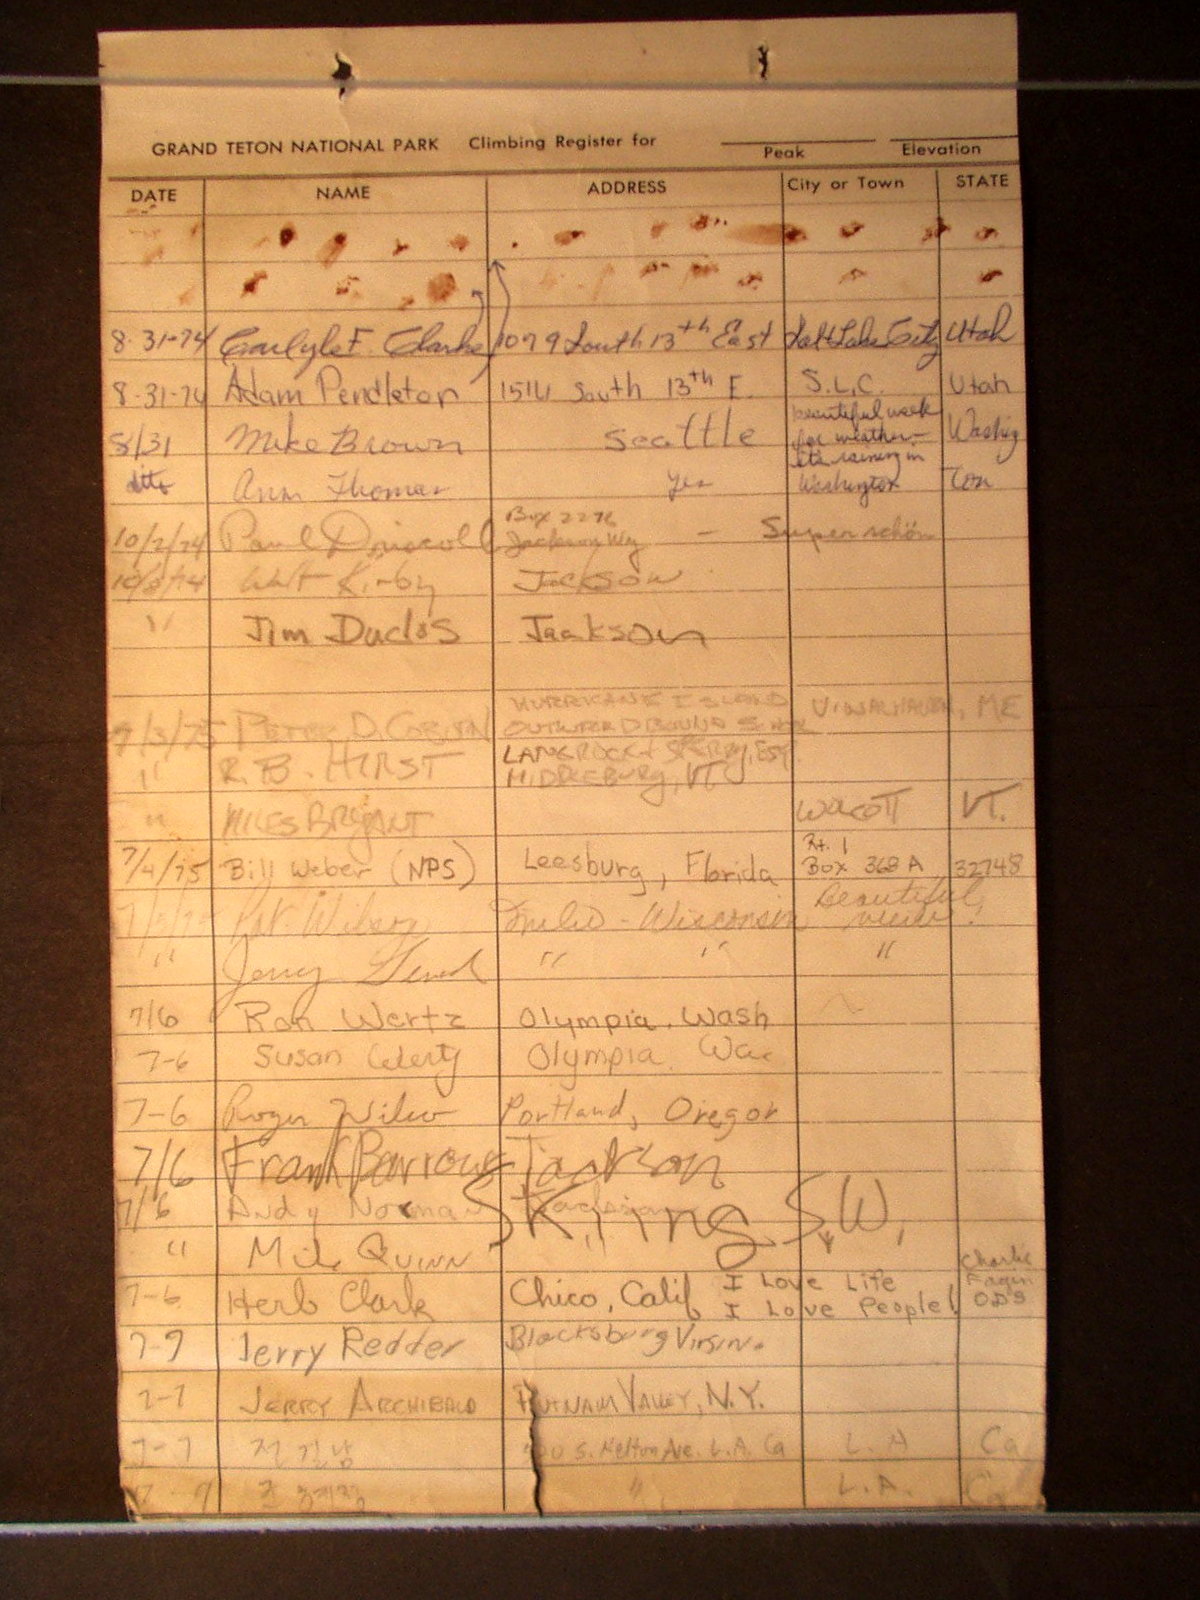 GRAND TETON NATIONAL PARK Climbing Register for
Peak Elevation
DATE NAME ADDRESS City or Town STATE
8-31-74 Carlyle F. Clarke 1079 South 13th East Salt Lake City Utah
8-31-74 Adam Pendleton 1514 South 13th E. S.L.C. Utah
8/31 Mike Brown Seattle beautiful week for weather- its raining in Washington Washing
ditto Ann Thomas yes ton
10/2/74 Paul Driscoll Box 2276 Jackson Wy - Super schön
10/2/74 Walt Kirby Jackson
" Jim Duclos Jackson
7/3/75 PETER D. HURRICANE ISLAND OUTWARD BOUND VINALHAVEN, ME
" R. B. HIRST LANGROCK & SPERRY, ESQ. MIDDLEBURY, VT
" MILES BRYANT WOLCOTT VT.
7/4/75 Bill Weber (NPS) Leesburg, Florida Rt. 1 Box 368 A 32748
Pat Wilson - Wisconsin Beautiful view!
" Jerry " " "
7/6 Ron Wertz Olympia. Wash
7-6 Susan Wertz Olympia Wa
7-6 Roger Portland, Oregon
7/6 Frank Barrows Jackson
7/6 Andy Norman Jackson SKiing S.W.
" Mike QUINN
7-6 Herb Clark Chico, Calif I Love Life I Love People! Charlie Fagin
7-7 Jerry Redder Blacksburg Virginia
7-7 JERRY ARCHIBALD PUTNAM VALLEY, N.Y.
7-7 전 길남 S. Melton Ave. L.A. Ca L.A Ca
7-7 " L.A. Ca